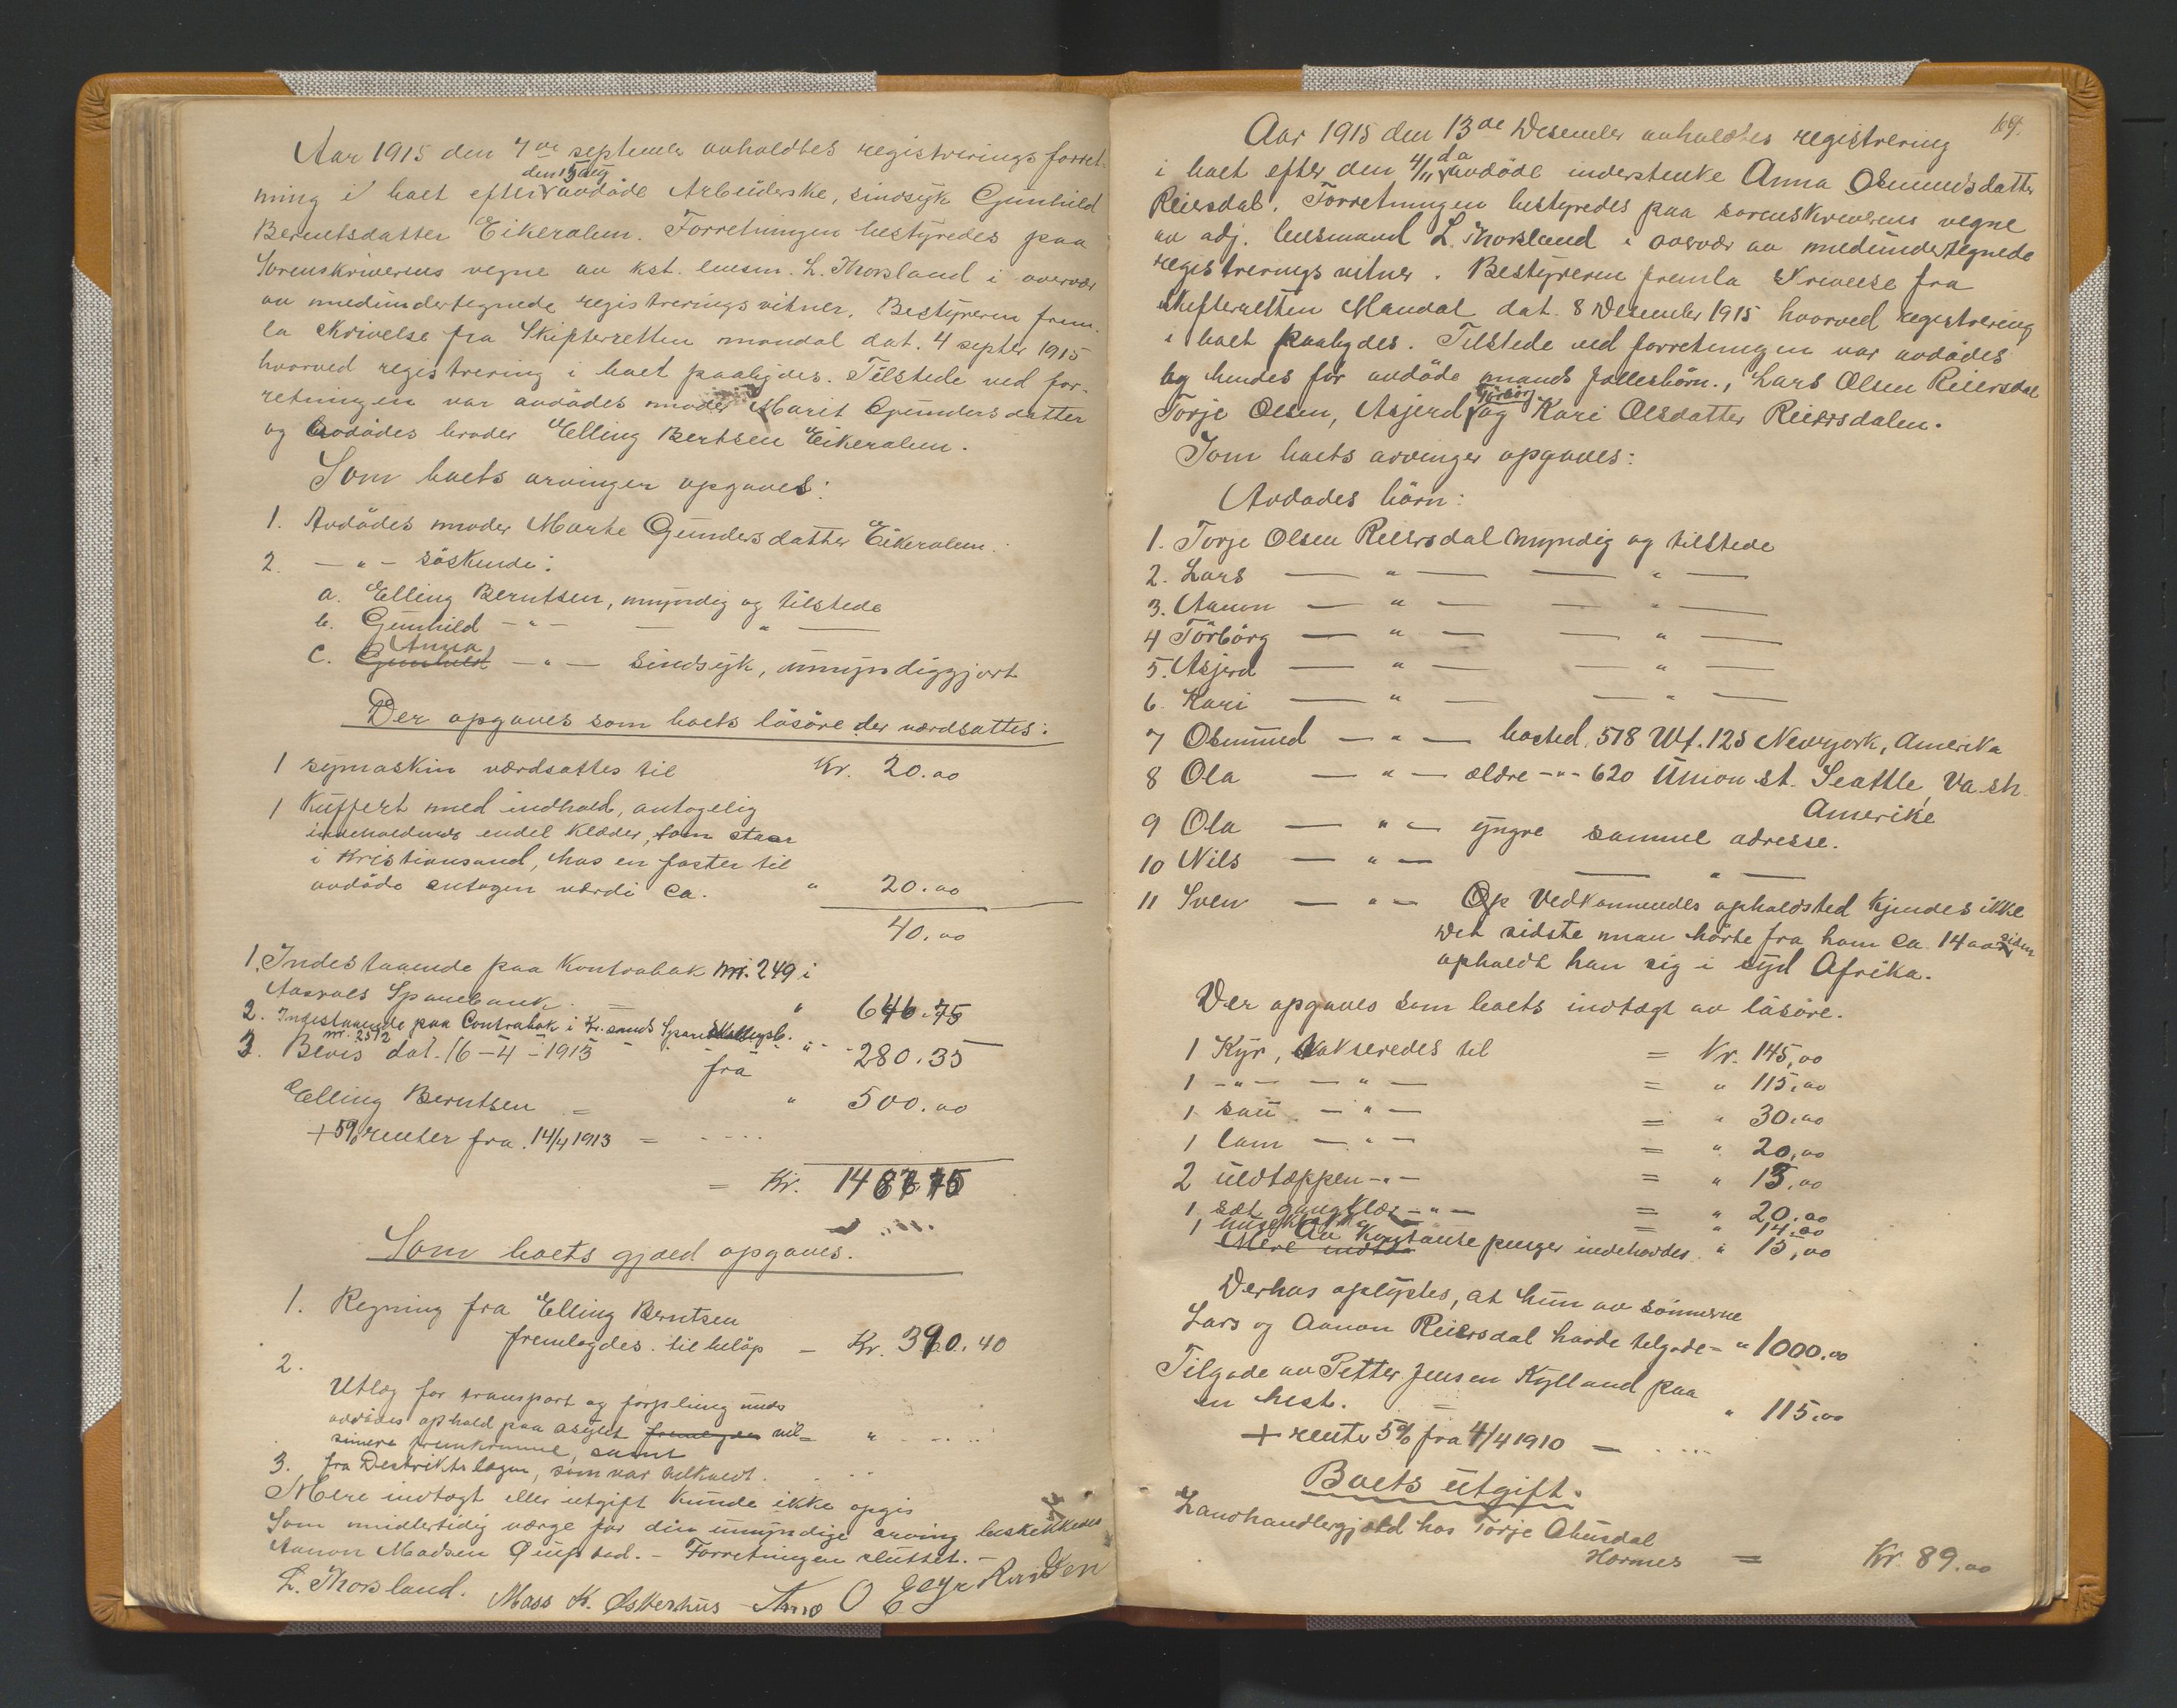 Aar 1915 den 7de september avholdtes registrerings forret-
ning i boet efter den 15 aug avdøde Arbeiderske, sindsyk Gunhild
Berentsdatter Eikeralen. Forretningen bestyredes paa
Sorenskriverens vegne av kst. lensm. L. Thorsland i overvær
av medundertegnede registreringsvitner. Bestyreren frem-
la skrivelse fra Skifteretten mandal dat. 4 septbr 1915
hvorved registrering i boet paabydes. Tilstede ved for-
retningen var avdødes moder Marit Gundersdatter
og Avdødes broder Elling Bertsen Eikeralen.
Som boets arvinger opgaves:
1. Avdødes moder Marte Gundersdatter Eikeralen.
2. — " — söskende:
a. Elling Berntsen, myndig og tilstede
b. Gunhild — " — — " —
c. Gunhild Anna — " — sindsyk, umyndiggjort
Der opgaves som boets løsøre der værdsattes:
1 symaskin værdsattes til Kr. 20.00
1 Kuffert med indhold, antagelig
indeholdende endel klæder, som staar
i Kristiansand, hos en faster til
avdøde antagen værdi ca. " 20.00
40.00
1. Indestaaende paa Kontrabok nr. 249 i
Aaserals Sparebank = " 646.75
2. Indestaaende paa Contrabok i Kr.sands Spare
nr. 2512 " 280.35
3. Bevis dat. 16-4-1913 fra
Elling Berntsen = " 500.00
+ 5% renter fra 14/4 1913 = ....
= Kr. 14
Som boets gjæld opgaves.
1. Regning fra Elling Berntsen
fremlagdes. til beløp — Kr. 390.40
2.
Utlæg for transport og forpleining under
avdødes ophold paa asylet fremlægges vil " ....
senere fremkomme, samt
3. fra Distriktslægen, som var tilkaldt. ....
Mere indtægt eller utgift kunde ikke opgis
Som midlertidig værge for den umyndige arving beskikkedes
Aanon Madsen Øiufstad. — Forretningen sluttet. —
L. Thorsland. Mass K. Øskerhus Arne O

69.
Aar 1915 den 13de Desember avholdtes registrering
i boet efter den 4/11 d.a avdøde inderstenke Anna Osmundsdatter
Reiersdal. Forretningen bestyredes paa sorenskriverens vegne
av adj. lensmand L. Thorsland i overvær av medundertegnede
registreringsvitner. Bestyreren fremla skrivelse fra
skifteretten Mandal dat. 8 Desember 1915 hvorved registrering
i boet paabydes. Tilstede ved forretningen var avdødes
og hendes før avdøde mands fællesbørn., Lars Olsen Reiersdal
Torje Olsen, Asjerd Törbörg og Kari Olsdatter Reiersdalen.
Som boets arvinger opgaves:
Avdødes børn:
1. Torje Olsen Reiersdal myndig og tilstede
2. Lars — " — — " —
3. Aanon — " — — " —
4 Törbörg — " — — " —
5. Asjerd — " — — " —
6. Kari — " — — " —
7 Osmund — " — bosted. 518 Wf. 125 Newyork, Amerika
8 Ola — " — ældre — " — 620 Union st. Seattle, Va.sh.
Amerike
9 Ola — " — yngre samme adresse.
10 Nils — " — — " —
11 Sven — " — Op Vedkommendes opholdsted kjendes ikke
Det sidste man hørte fra ham ca 14 aar siden
opholdt han sig i syd Afrika.
Der opgaves som boets indtægt av løsøre.
1 Kyr, takseredes til = Kr. 145,00
1 — " — — " — = " 115,00
1 sau — " — = " 30.00
1 lam — " — = " 20,00
2 uldtæppen — " — = " 13,00
1 sæt gangklær — " — = " 20.00
1 = " 14.00
Mere indtæ Av Kontante penger indehavdes " 15,00
Derhos oplystes, at hun av sønnerne
Lars og Aanon Reiersdal havde tilgode — " 1000.00
Tilgode av Petter Jensen Kylland paa
en hest. = " 115.00
+ rente 5% fra 4/4 1910 — ....
Boets utgift.
Landhandlergjæld hos Torje Åbusdal
Hornes = Kr. 89.00